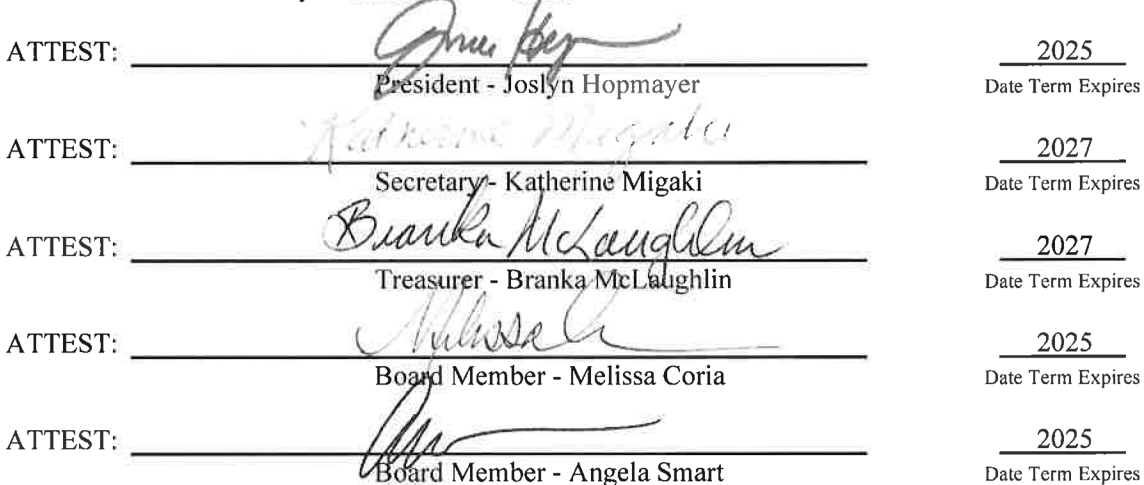 ATTEST:
2025
President - Joslyn Hopmayer
Date Term Expires
Katherine Migaki
ATTEST:
2027
Secretary - Katherine Migaki
Date Term Expires
Branka McLaughlin
ATTEST:
2027
Treasurer - Branka McLaughlin
Date Term Expires
Melissa C
ATTEST:
2025
Board Member - Melissa Coria
Date Term Expires
ATTEST:
2025
Board Member - Angela Smart
Date Term Expires